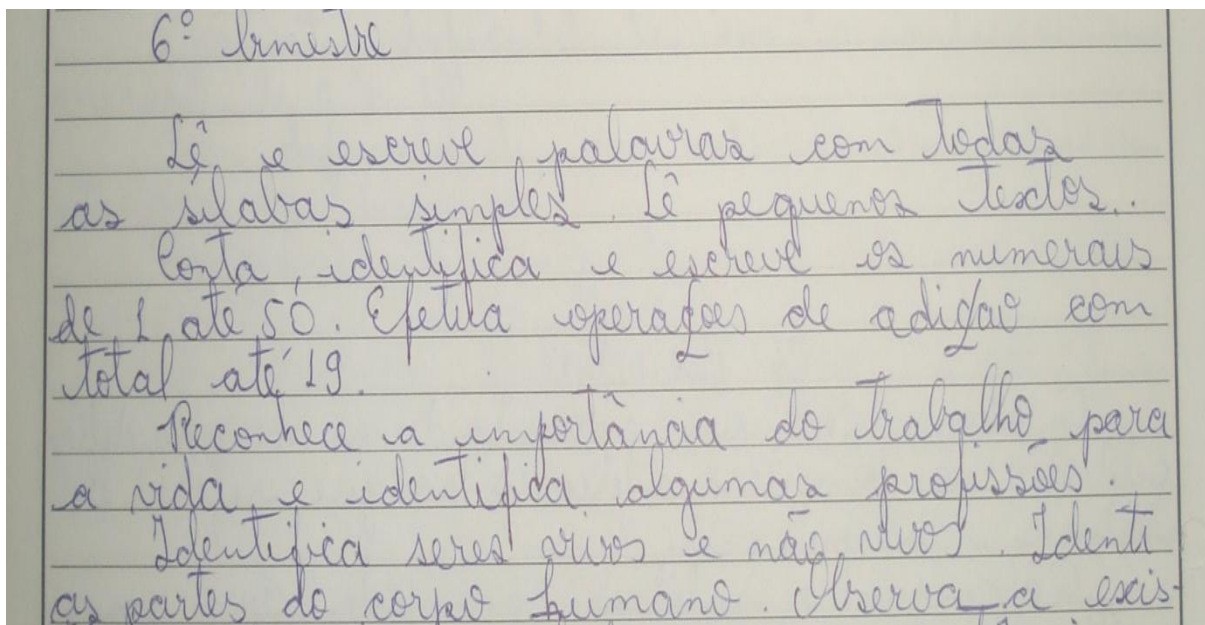 6º bimestre
Lê e escreve palavras com todas
as sílabas simples. Lê pequenos textos.
Conta, identifica e escreve os numerais
de 1 até 50. Efetua operações de adição com
total até 19.
Reconhece a importância do trabalho para
a vida e identifica algumas profissões.
Identifica seres vivos e não vivos. Identi
as partes do corpo humano. Observa a exis-